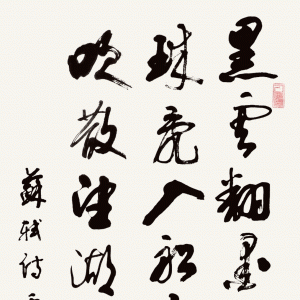 黑雲翻墨
珠亂入船
吹散望湖
蘇軾詩